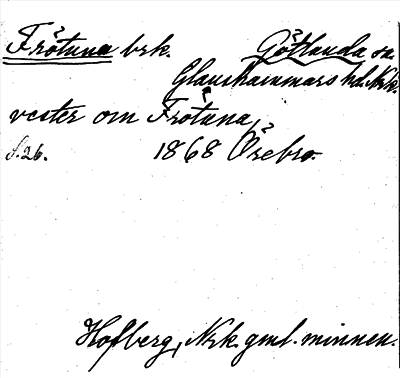 Frötuna brk. Götlunda sn.
Glanshammars hd. Nrk.
vester om Frötuna,
S. 26. 1868 Örebro.
Hofberg, Nrk. gml. minnen.